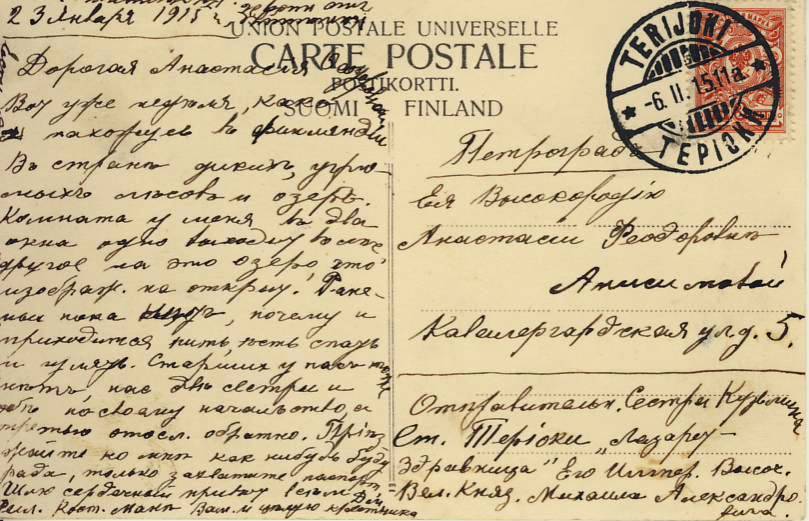 23 Января 1915 г.
UNION POSTALE UNIVERSELLE
CARTE POSTALE
POSTIKORTTI.
SUOMI FINLAND
Дорогая Анастасия
Вот уже неделя, как
я нахожусь в Финляндiи
Въ странѣ дикихъ, угрю-
мыхъ лѣсовъ и озеръ.
Комната у меня въ два
окна одно выходит
другое на это озеро что
изображ. на открыт. Ране-
ныхъ пока нѣтъ, почему и
приходится пить, ѣсть спать
и гулять. Старшихъ у насъ
нѣтъ, насъ двѣ сестры и
обѣ по своему начальство, а
третью отосл. обратно. Прiѣз
жайте ко мнѣ как нибудь буду
рада, только захватите паспортъ
Шлю сердечный привѣт всѣмъ
Вам. и цѣлую
TERIJOKI
-6.II.15.11a.
ТЕРIОКИ
Петроградъ
Ея Высокородiю
Анастасiи Феодоровнѣ
Анисимовой
Кавалергардская ул. д. 5.
Отправительн. Сестра
Ст. Терiоки „Лазарет-
Здравница" Его Импер. Высоч.
Вел. Княз. Михаила Александро-
вича.